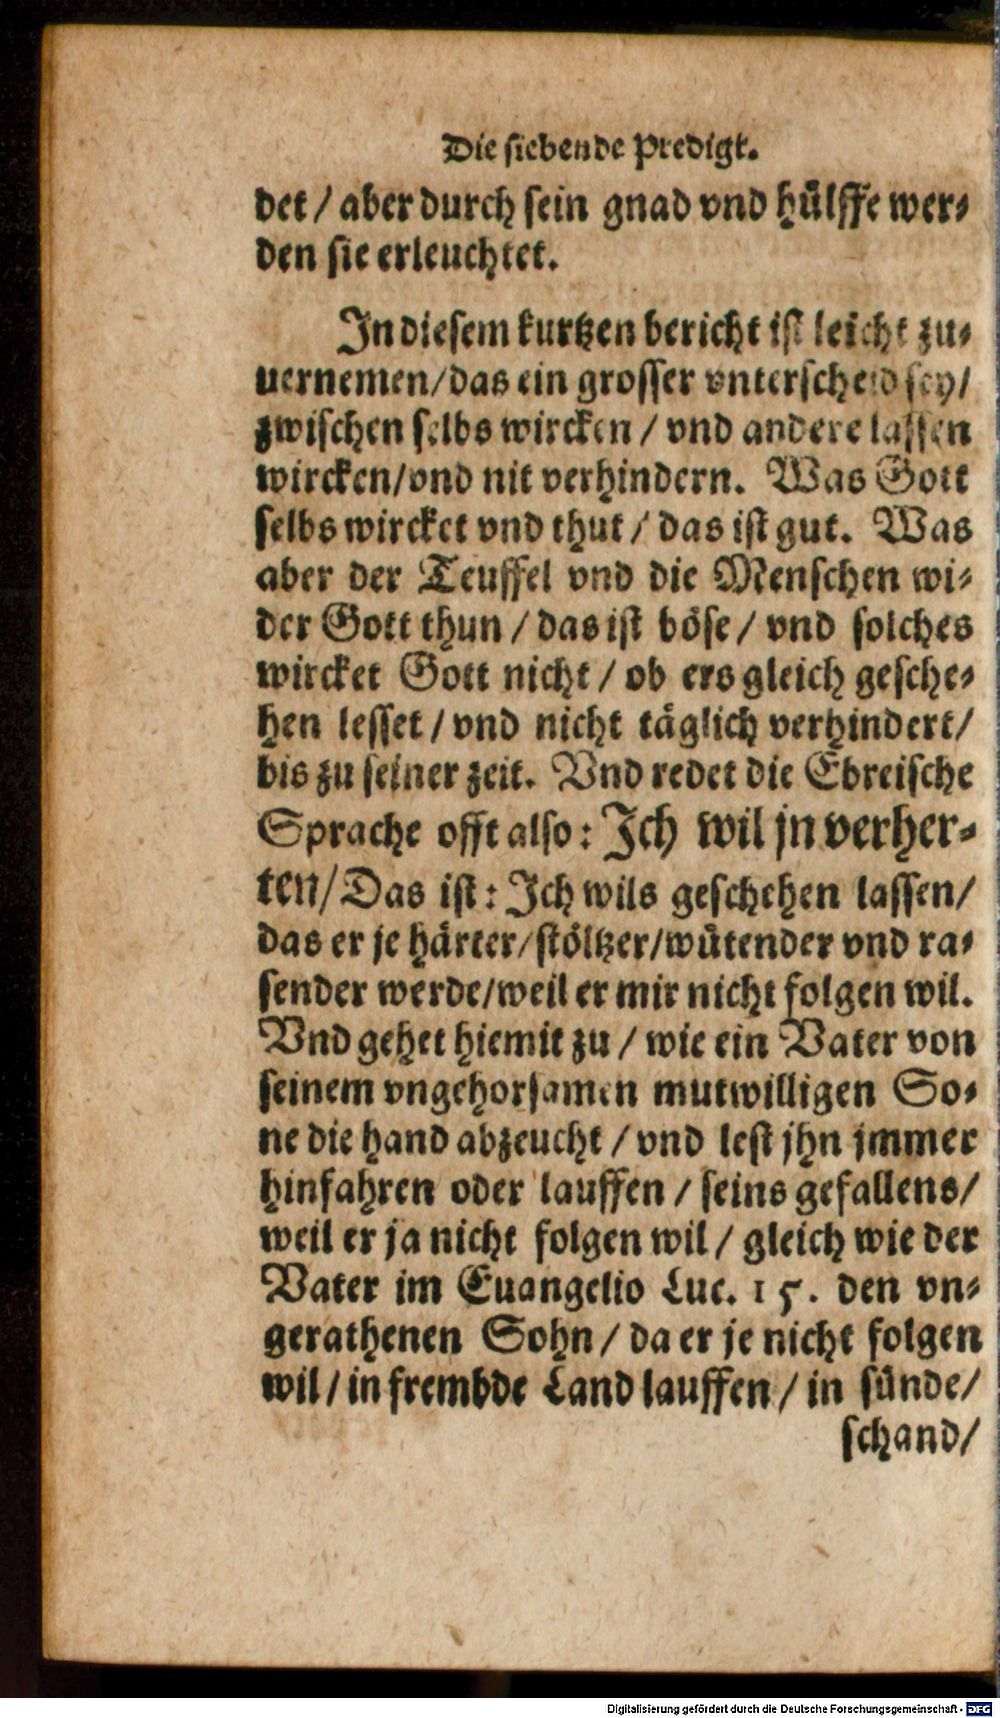 Die siebende Predigt.
det / aber durch sein gnad vnd hülffe wer-
den sie erleuchtet.
In diesem kurtzen bericht ist leicht zu-
uernemen/das ein grosser vnterscheid sey/
zwischen selbs wircken / vnd andere lassen
wircken/vnd nit verhindern. Was Gott
selbs wircket vnd thut / das ist gut. Was
aber der Teuffel vnd die Menschen wi-
der Gott thun / das ist böse / vnd solches
wircket Gott nicht / ob ers gleich gesche-
hen lesset / vnd nicht täglich verhindert/
bis zu seiner zeit. Vnd redet die Ebreische
Sprache offt also: Ich wil jn verher-
ten/Das ist: Ich wils geschehen lassen/
das er je härter/stöltzer/wütender vnd ra-
sender werde/weil er mir nicht folgen wil.
Vnd gehet hiemit zu / wie ein Vater von
seinem vngehorsamen mutwilligen So-
ne die hand abzeucht / vnd lest jhn jmmer
hinfahren oder lauffen / seins gefallens/
weil er ja nicht folgen wil / gleich wie der
Vater im Euangelio Luc. 15. den vn-
gerathenen Sohn / da er je nicht folgen
wil / in frembde Land lauffen / in sünde/
schand/
Digitalisierung gefördert durch die Deutsche Forschungsgemeinschaft - DFG